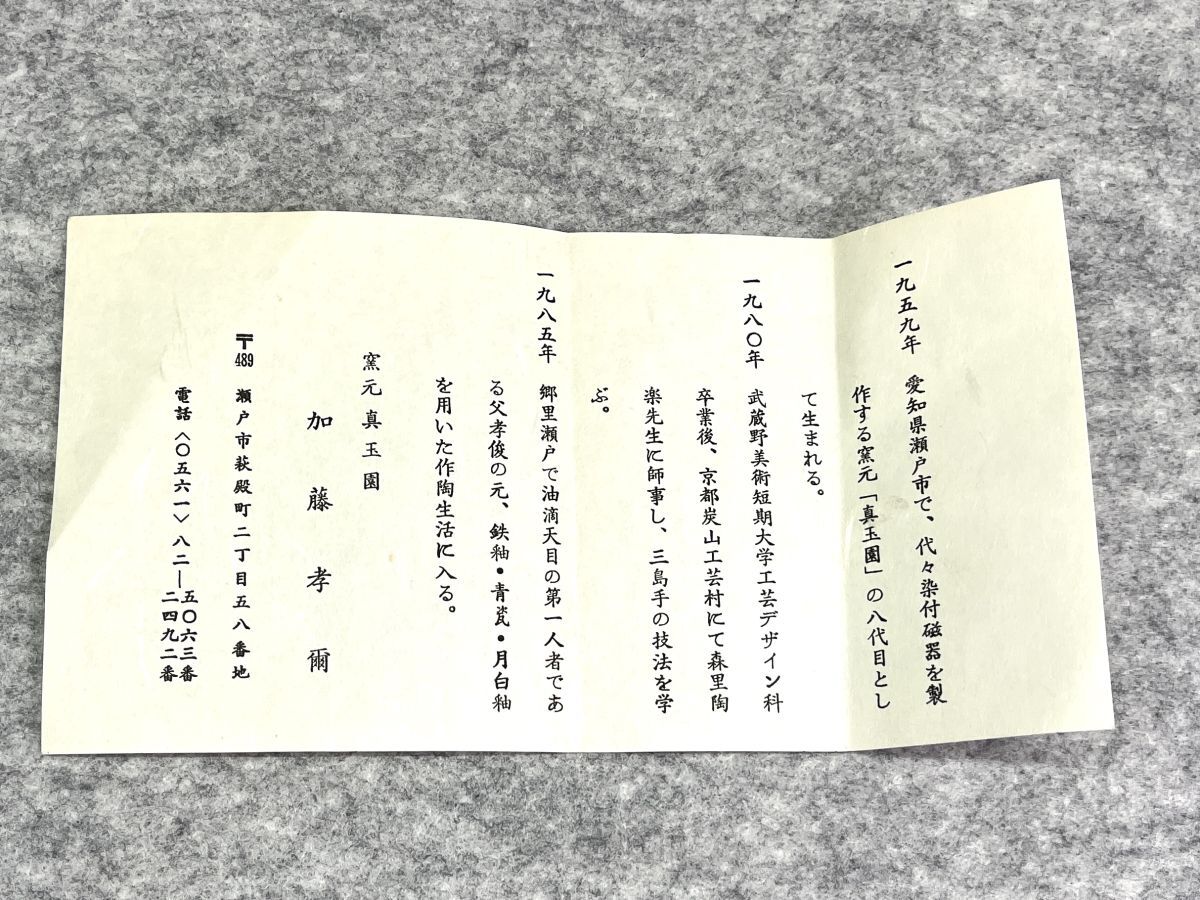 一九五九年　愛知県瀬戸市で、代々染付磁器を製
作する窯元「真玉園」の八代目とし
て生まれる。
一九八〇年　武蔵野美術短期大学工芸デザイン科
卒業後、京都炭山工芸村にて森里陶
楽先生に師事し、三島手の技法を学
ぶ。
一九八五年　郷里瀬戸で油滴天目の第一人者であ
る父孝俊の元、鉄釉・青瓷・月白釉
を用いた作陶生活に入る。
窯元真玉園
加藤孝爾
〒489　瀬戸市萩殿町二丁目五八番地
電話〈〇五六一〉八二―五〇六三番
二四九二番